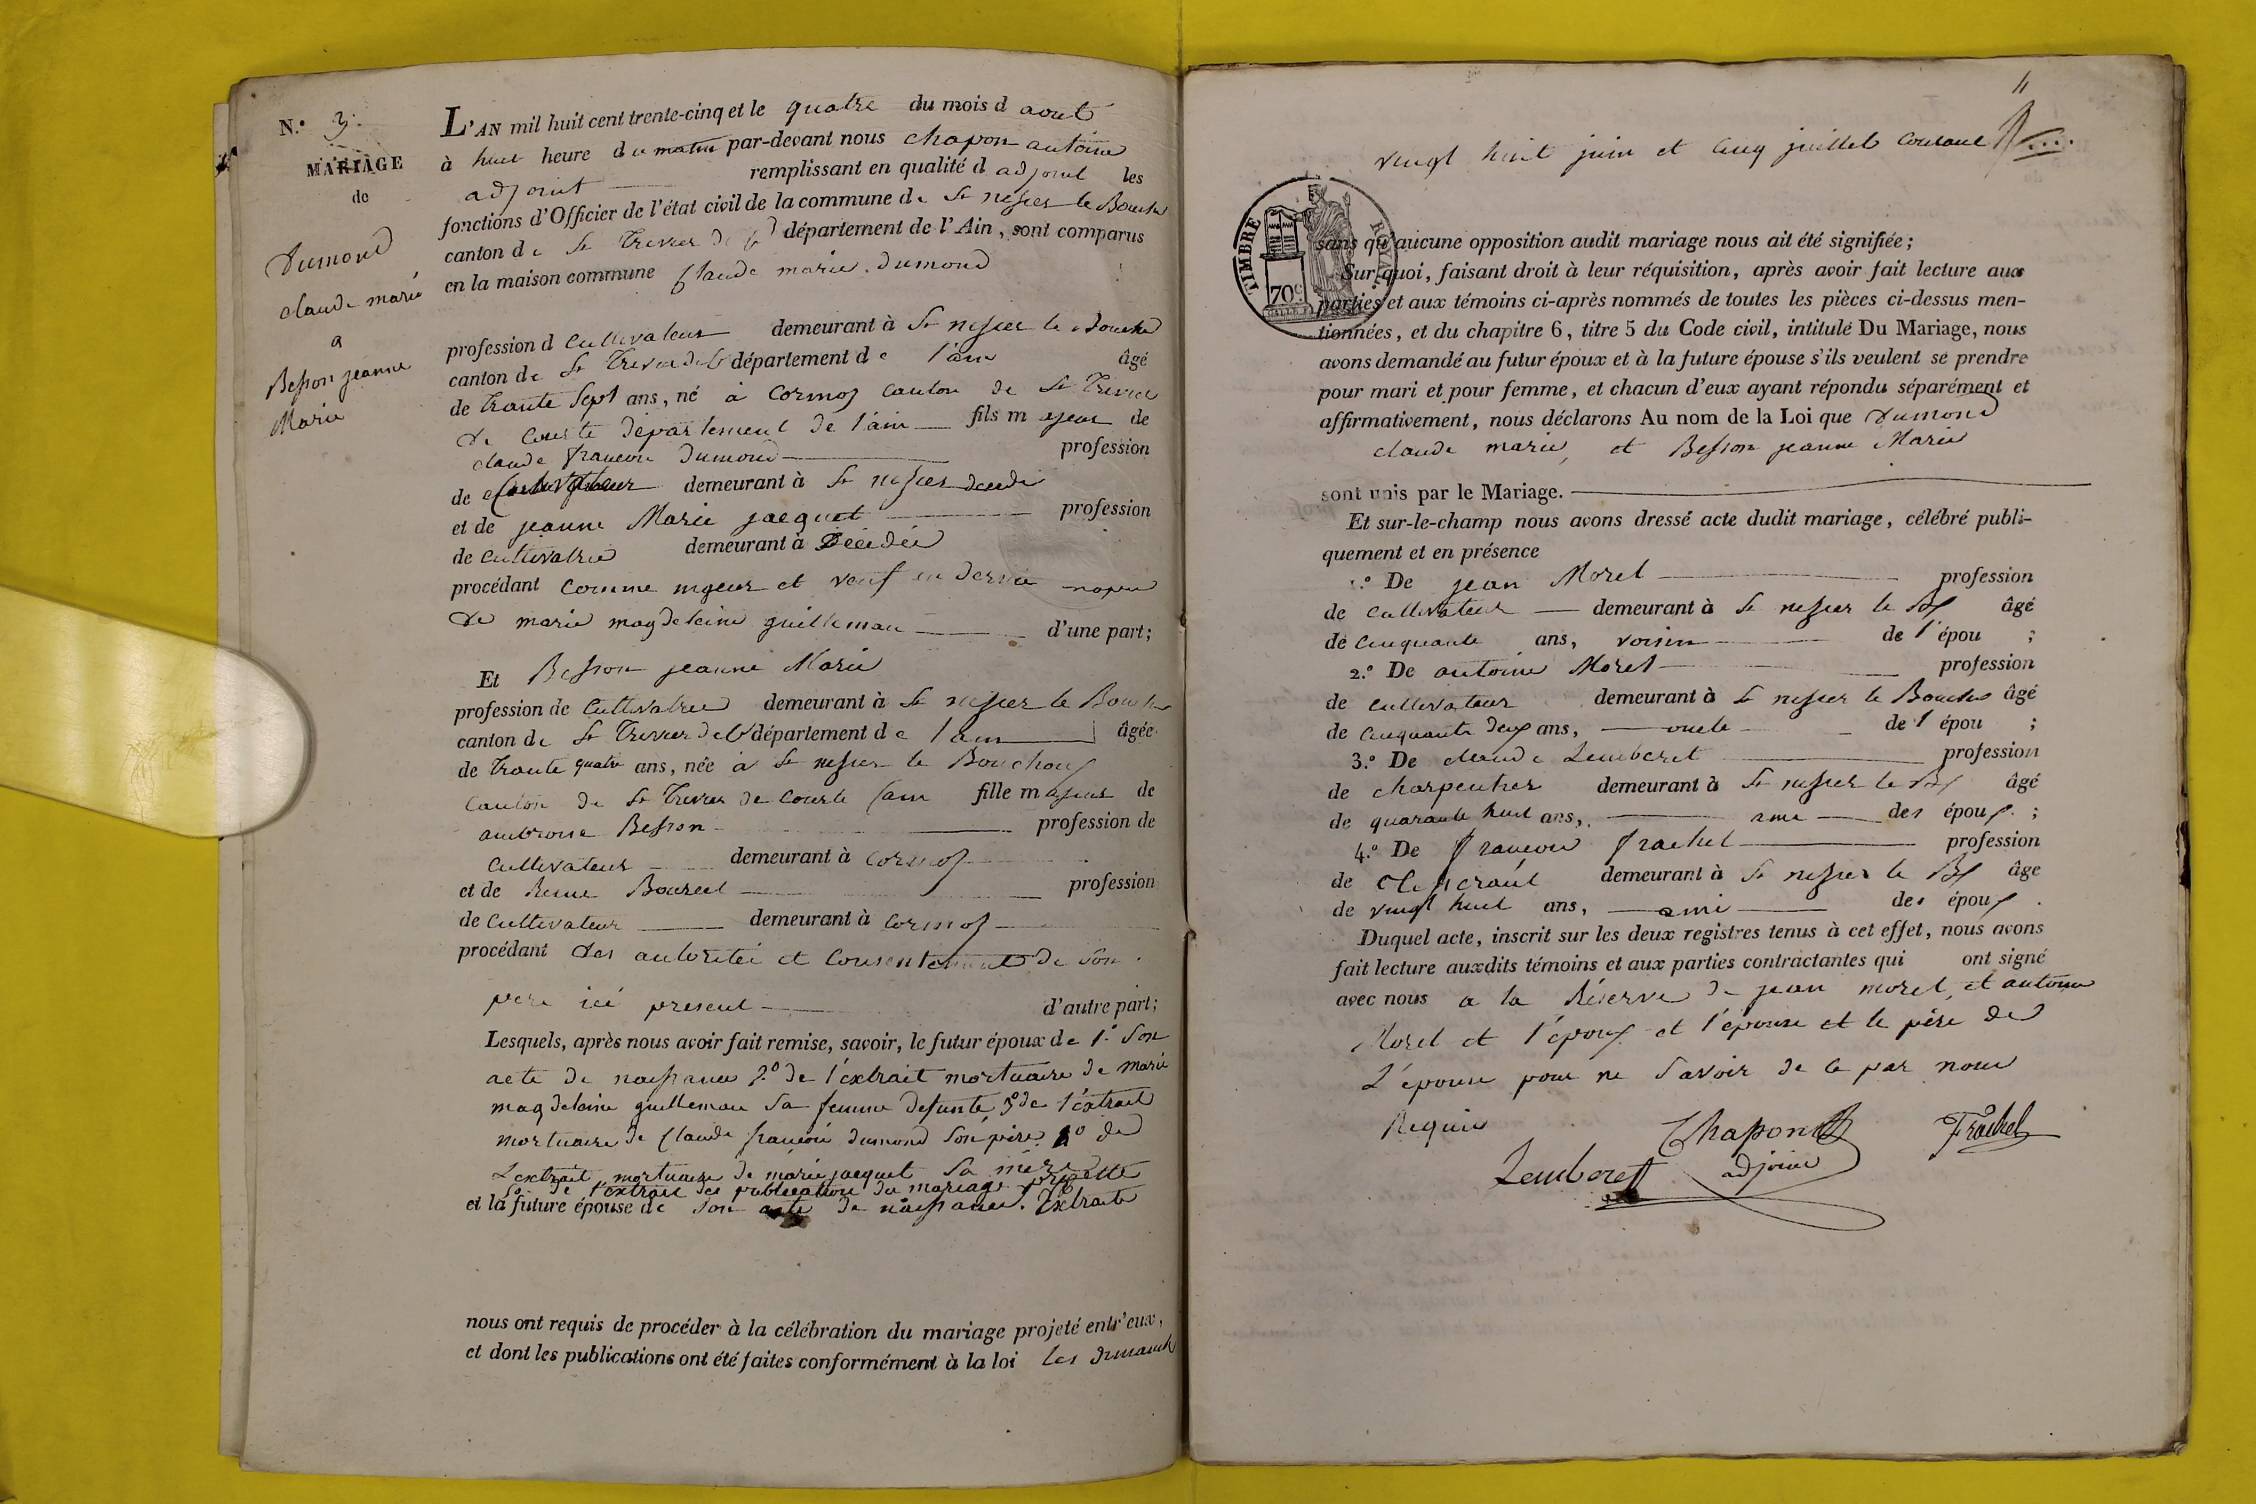 N.° 3.
MARIAGE
de
Dumond
claude marie
a
Besson jeanne
Marie
L'AN mil huit cent trente-cinq et le quatre du mois d aout
à huit heure du matin par-devant nous chapon antoine
adjoint remplissant en qualité d adjoint les
fonctions d'Officier de l'état civil de la commune de St nisier le Bouchu
canton de St Trivier de département de l'Ain, sont comparus
en la maison commune Claude marie dumond
profession d cultivateur demeurant à St nisier le Bouchu
canton de St Trivier de département de l'ain âgé
de trante sept ans, né à Cormoz canton de St Trivier
de Courte département de l'ain fils majeur de
claude francois dumond profession
de cultivateur demeurant à St nisier décédé
et de jeanne Marie jacquet profession
de cultivatrice demeurant à Décédée
procédant comme mjeur et veuf en
de marie magdeleine guilleman d'une part;
Et Besson jeanne Marie
profession de cultivatrice demeurant à St nisier le Bouchu
canton de St Trivier de département de l'ain âgée
de trante quatre ans, née à St nisier le Bouchoux
canton de St Trivier de Courte l'ain fille majeur de
ambroise Besson profession de
cultivateur demeurant à Cormoz
et de Reine profession
de cultivateur demeurant à Cormoz
procédant des autorité et consentement de son
pere ici present d'autre part;
Lesquels, après nous avoir fait remise, savoir, le futur époux de 1.° son
acte de naissance 2.° de l'extrait mortuaire de marie
magdeleine guilleman sa femme defunte 3° de l'extrait
mortuaire de Claude francois dumond son père 4° de
L'extrait mortuaire de marie jacquet sa mère
5° de l'extrait des publication du mariage
et la future épouse de son acte de naissance. Extraite
nous ont requis de procéder à la célébration du mariage projeté entr'eux,
et dont les publications ont été faites conformément à la loi les dimanch
vingt huit juin et cinq juillet courant
TIMBRE ROYAL
70c
sans qu'aucune opposition audit mariage nous ait été signifiée;
Sur quoi, faisant droit à leur réquisition, après avoir fait lecture aux
parties et aux témoins ci-après nommés de toutes les pièces ci-dessus men-
tionnées, et du chapitre 6, titre 5 du Code civil, intitulé Du Mariage, nous
avons demandé au futur époux et à la future épouse s'ils veulent se prendre
pour mari et pour femme, et chacun d'eux ayant répondu séparément et
affirmativement, nous déclarons Au nom de la Loi que Dumond
claude marie, et Besson jeanne Marie
sont unis par le Mariage.
Et sur-le-champ nous avons dressé acte dudit mariage, célébré publi-
quement et en présence
1.° De jean Morel profession
de cultivateur demeurant à St nisier le Bx âgé
de cinquante ans, voisin de l'épou ;
2.° De antoine Morel profession
de cultivateur demeurant à St nisier le Bouchu âgé
de cinquante deux ans, oncle de l épou ;
3.° De claude Lemberet profession
de charpentier demeurant à St nisier le Bx âgé
de quarante huit ans, ami des époux ;
4.° De francois frachet profession
de demeurant à St nisier le Bx âge
de vingt huit ans, ami des époux .
Duquel acte, inscrit sur les deux registres tenus à cet effet, nous avons
fait lecture auxdits témoins et aux parties contractantes qui ont signé
avec nous a la Réserve de jean morel, et antoine
Morel et l'époux et l'épouse et le père de
L'épouse pour ne savoir de ce par nous
Requis
Chapon Frachet
Lemberet adjoint